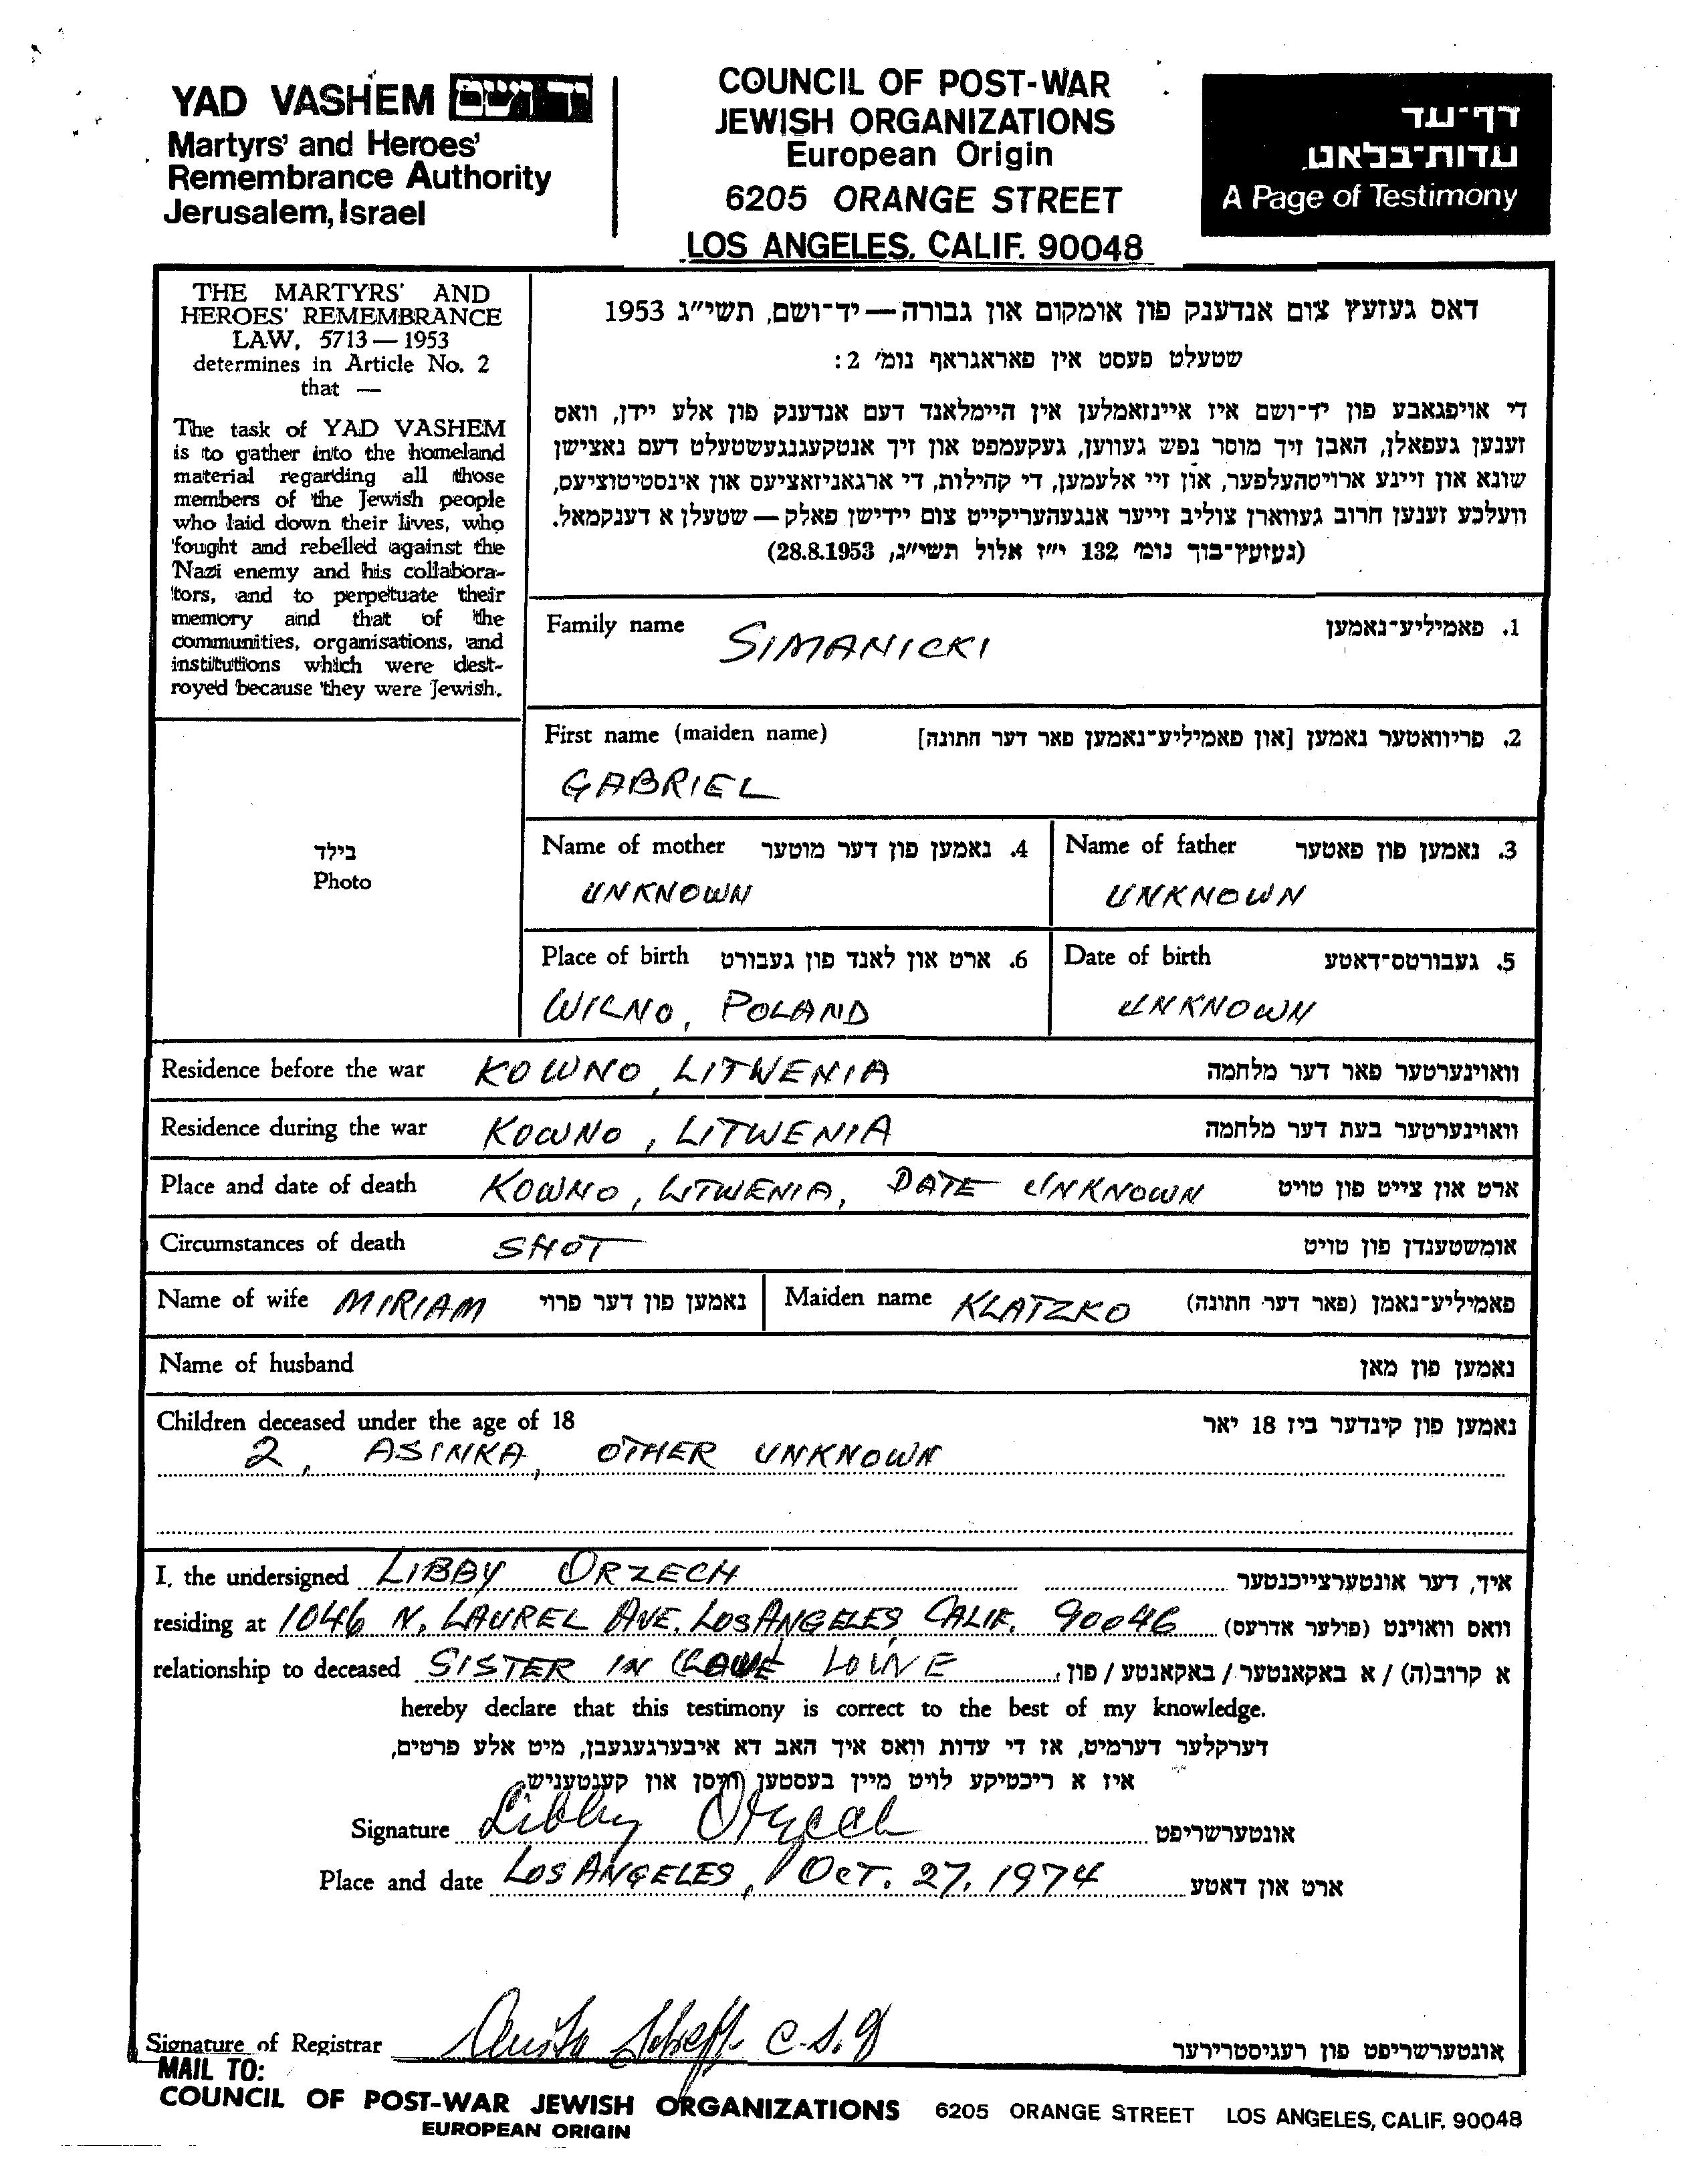 YAD VASHEM יד ושם
Martyrs' and Heroes'
Remembrance Authority
Jerusalem, Israel
COUNCIL OF POST-WAR
JEWISH ORGANIZATIONS
European Origin
6205 ORANGE STREET
LOS ANGELES, CALIF. 90048
דף-עד
עדות-בלאט
A Page of Testimony
THE MARTYRS' AND
HEROES' REMEMBRANCE
LAW, 5713 — 1953
determines in Article No. 2
that —
The task of YAD VASHEM
is to gather into the homeland
material regarding all those
members of the Jewish people
who laid down their lives, who
fought and rebelled against the
Nazi enemy and his collabora-
tors, and to perpetuate their
memory and that of the
communities, organisations, and
institutions which were dest-
royed because they were Jewish.
דאס געזעץ צום אנדענק פון אומקום און גבורה — יד-ושם, תשי"ג 1953
שטעלט פעסט אין פאראגראף נומ' 2:
די אויפגאבע פון יד-ושם איז איינזאמלען אין היימלאנד דעם אנדענק פון אלע יידן, וואס
זענען געפאלן, האבן זיך מוסר נפש געווען, געקעמפט און זיך אנטקעגנגעשטעלט דעם נאצישן
שונא און זיינע ארויסהעלפער, און זיי אלעמען, די קהילות, די ארגאניזאציעס און אינסטיטוציעס,
וועלכע זענען חרוב געווארן צוליב זייער אנגעהעריקייט צום יידישן פאלק — שטעלן א דענקמאל.
(געזעץ-בוך נומ' 132 י"ז אלול תשי"ג, 28.8.1953)
Family name SIMANICKI 1. פאמיליע-נאמען
First name (maiden name) 2. פריוואטער נאמען [און פאמיליע-נאמען פאר דער חתונה]
GABRIEL
בילד
Photo
Name of mother 4. נאמען פון דער מוטער
UNKNOWN
Name of father 3. נאמען פון פאטער
UNKNOWN
Place of birth 6. ארט און לאנד פון געבורט
WILNO, POLAND
Date of birth 5. געבורטס-דאטע
UNKNOWN
Residence before the war KOWNO, LITWENIA וואוינערטער פאר דער מלחמה
Residence during the war KOWNO, LITWENIA וואוינערטער בעת דער מלחמה
Place and date of death KOWNO, LITWENIA, DATE UNKNOWN ארט און צייט פון טויט
Circumstances of death SHOT אומשטענדן פון טויט
Name of wife MIRIAM נאמען פון דער פרוי Maiden name KLATZKO פאמיליע-נאמן (פאר דער חתונה)
Name of husband נאמען פון מאן
Children deceased under the age of 18 נאמען פון קינדער ביז 18 יאר
2, ASINKA, OTHER UNKNOWN
I, the undersigned LIBBY ORZECH איך, דער אונטערצייכנטער
residing at 1046 N. LAUREL AVE. LOS ANGELES, CALIF. 90046 וואס וואוינט (פולער אדרעס)
relationship to deceased SISTER IN LOWE א קרוב(ה) / א באקאנטער / באקאנטע / פון
hereby declare that this testimony is correct to the best of my knowledge.
דערקלער דערמיט, אז די עדות וואס איך האב דא איבערגעגעבן, מיט אלע פרטים,
איז א ריכטיקע לויט מיין בעסטען וויסן און קענטעניש.
Signature Libby Orzech אונטערשריפט
Place and date LOS ANGELES, OCT. 27, 1974 ארט און דאטע
Signature of Registrar אונטערשריפט פון רעגיסטרירער
MAIL TO:
COUNCIL OF POST-WAR JEWISH ORGANIZATIONS 6205 ORANGE STREET LOS ANGELES, CALIF. 90048
EUROPEAN ORIGIN